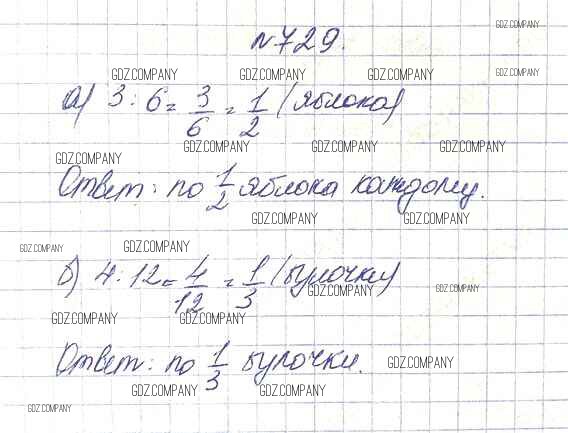 №729.
GDZ.COMPANY
GDZ.COMPANY GDZ.COMPANY GDZ.COMPANY GDZ.COMPANY
а) 3 : 6 = 3/6 = 1/2 (яблока)
GDZ.COMPANY GDZ.COMPANY GDZ.COMPANY GDZ.COMPANY
Ответ: по 1/2 яблока каждому.
GDZ.COMPANY GDZ.COMPANY
GDZ.COMPANY GDZ.COMPANY
б) 4 . 12 = 4/12 = 1/3 (булочки)
GDZ.COMPANY GDZ.COMPANY
GDZ.COMPANY GDZ.COMPANY
Ответ: по 1/3 булочки.
GDZ.COMPANY
GDZ.COMPANY GDZ.COMPANY
GDZ.COMPANY